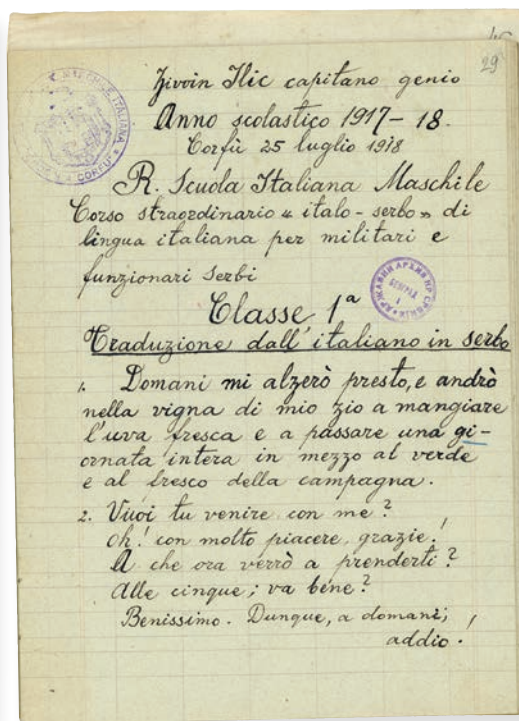 29
Živoin Ilic capitano genio
Anno scolastico 1917-18.
Corfù 25 luglio 1918
R. Scuola Italiana Maschile
Corso straordinario « italo-serbo » di
lingua italiana per militari e
funzionari serbi
MASCHILE ITALIANA
CORFU'
ДРЖАВНИ АРХИВ НР СРБИЈЕ
БЕОГРАД
Classe 1ª
Traduzione dall'italiano in serbo
1. Domani mi alzerò presto, e andrò
nella vigna di mio zio a mangiare
l'uva fresca e a passare una gi-
ornata intera in mezzo al verde
e al fresco della campagna.
2. Vuoi tu venire con me?
Oh! con molto piacere, grazie!
A che ora verrò a prenderti?
Alle cinque; va bene?
Benissimo. Dunque, a domani;
addio!